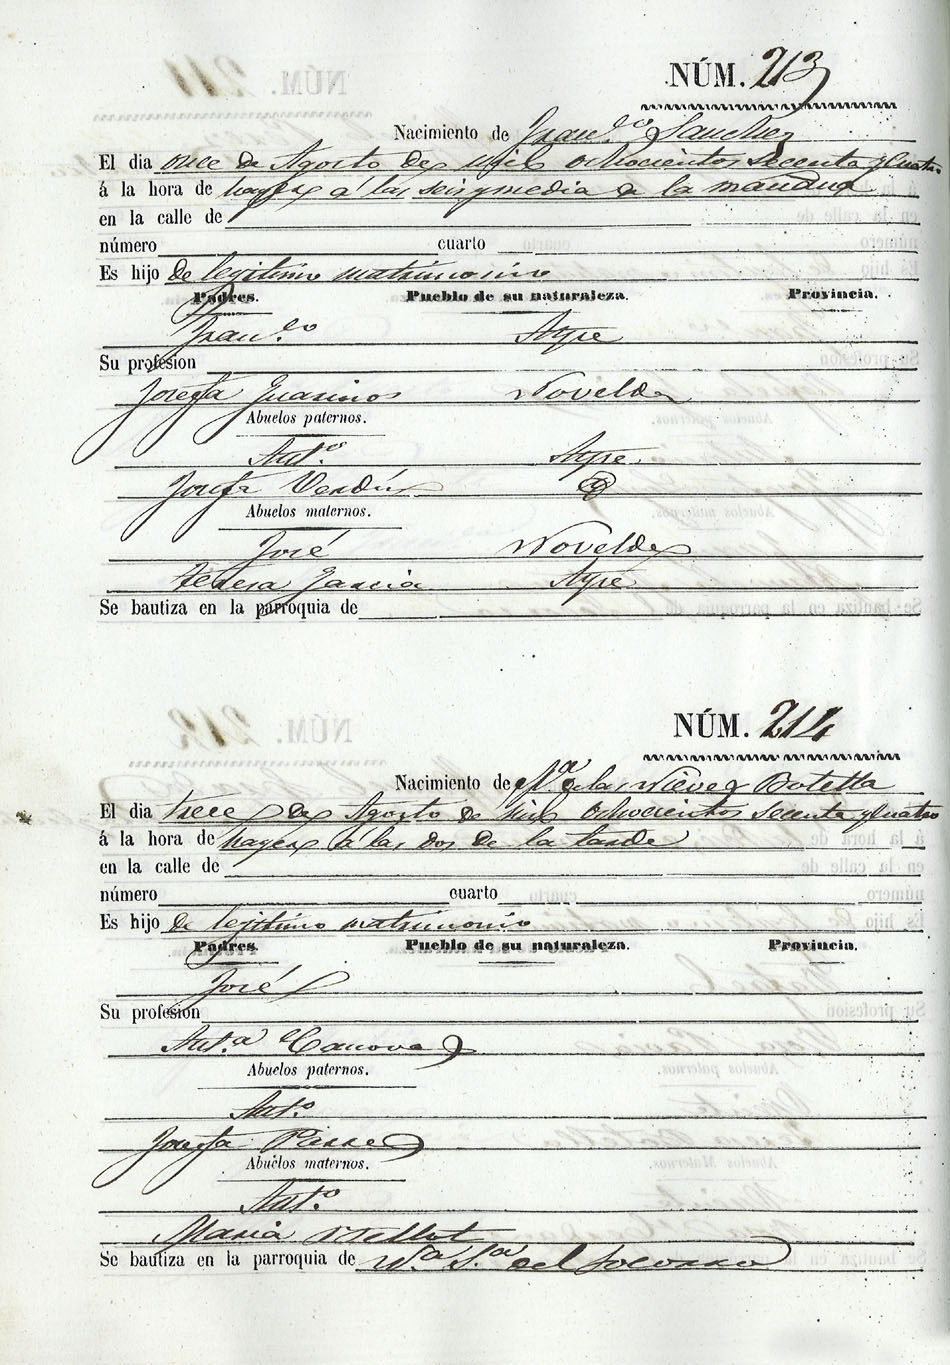 NÚM. 213
Nacimiento de Fran.co Sanchez
El dia once de Agosto de mil ochocientos secenta y cuatro
á la hora de hayer a las seis y media de la mañana
en la calle de
número cuarto
Es hijo de legitimo matrimonio
Padres. Pueblo de su naturaleza. Provincia.
Fran.co Aspe
Su profesion
Josefa Guarinos Novelda
Abuelos paternos.
Ant.o Aspe
Josefa Verdú
Abuelos maternos.
José Novelda
Teresa Garcia Aspe
Se bautiza en la parroquia de
NÚM. 214
Nacimiento de M.a de las Nieves Botella
El dia trece de Agosto de mil ochocientos secenta y cuatro
á la hora de hayer a las dos de la tarde
en la calle de
número cuarto
Es hijo de legitimo matrimonio
Padres. Pueblo de su naturaleza. Provincia.
José
Su profesion
Ant.a Canovas
Abuelos paternos.
Ant.o
Josefa
Abuelos maternos.
Ant.o
Maria
Se bautiza en la parroquia de N.a S.a del Socorro